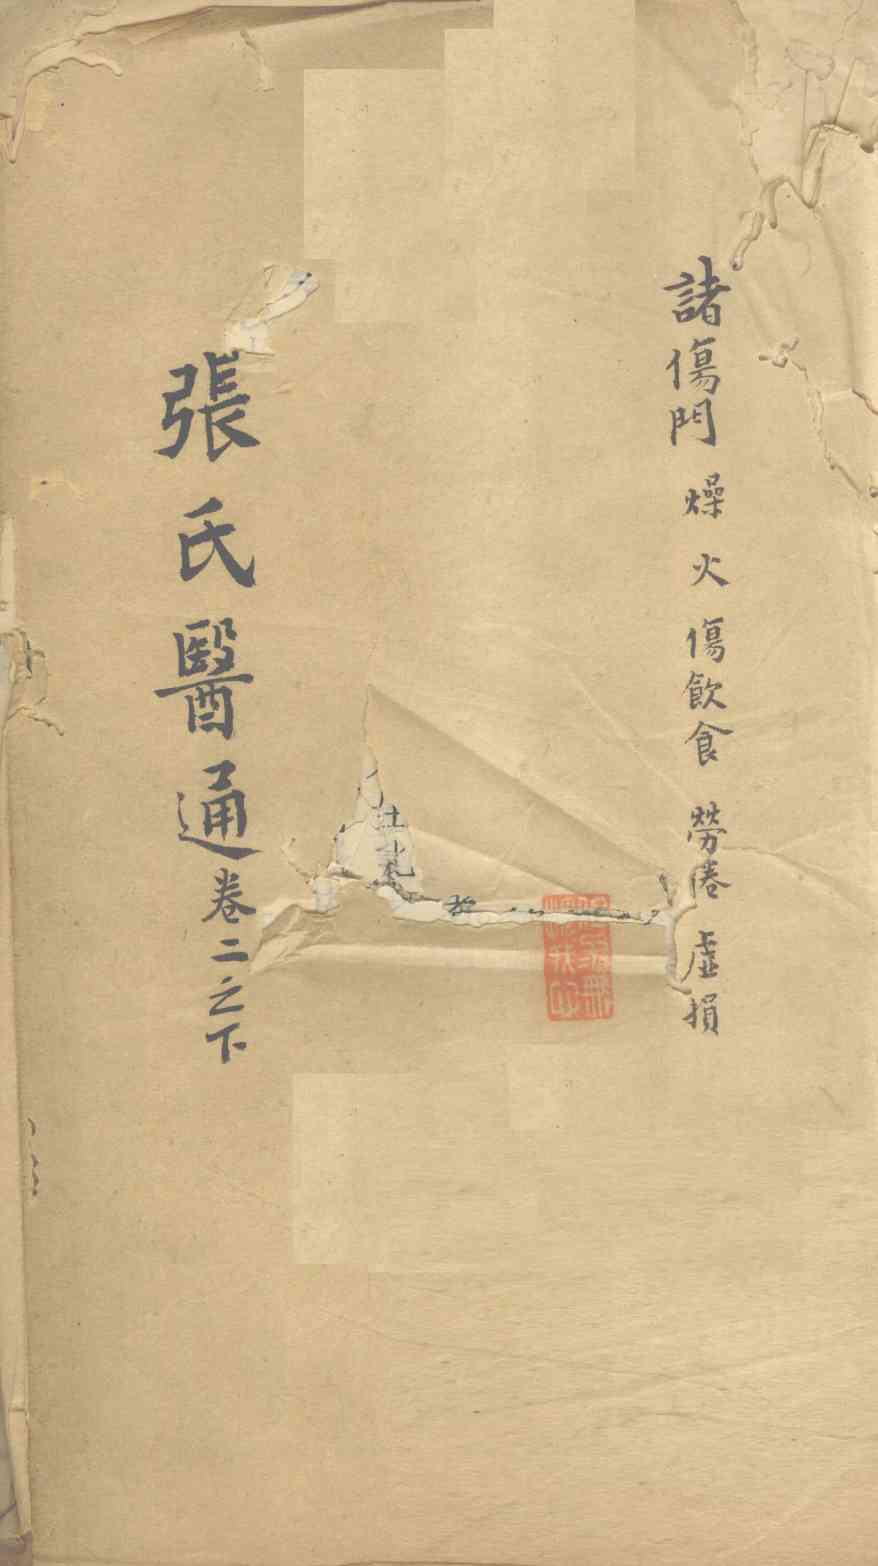 諸傷門 燥 火 傷飲食 勞倦 虛損
張氏醫通卷二之下